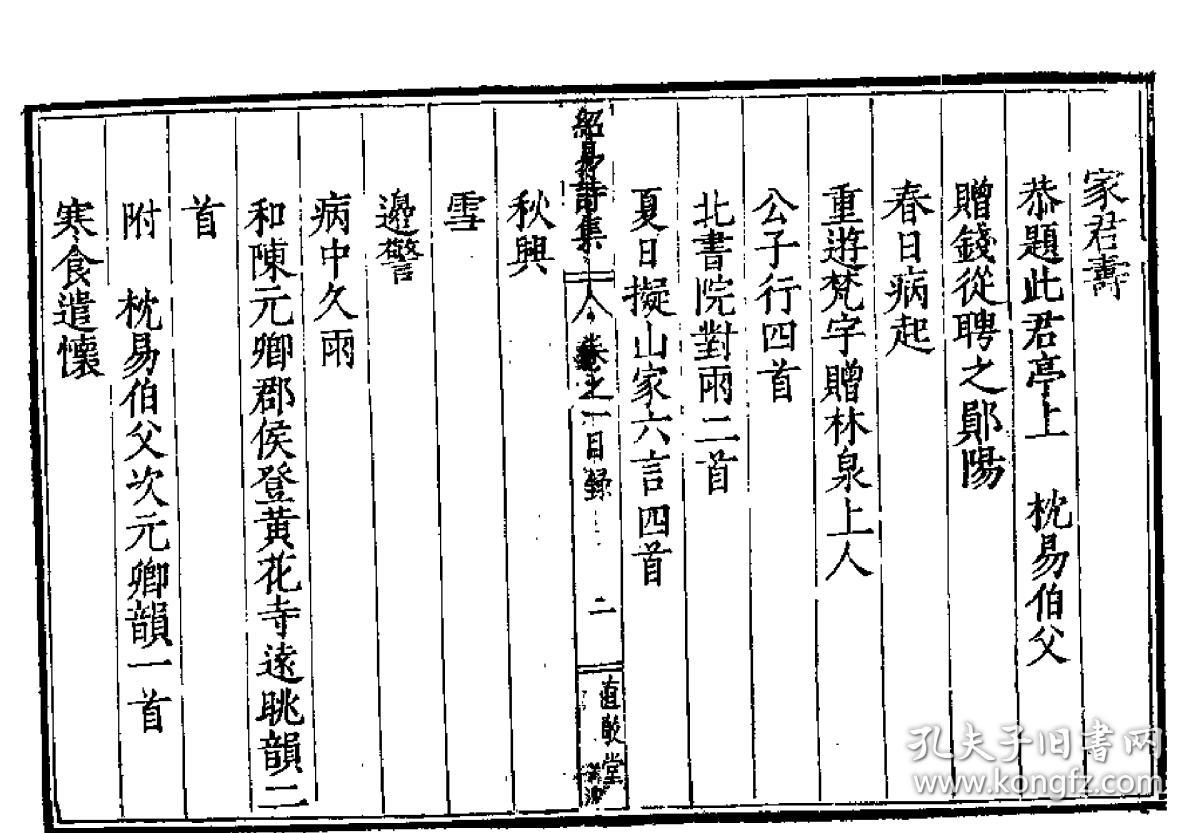 家君壽
恭題此君亭上 枕易伯父
贈錢從聘之鄖陽
春日病起
重遊梵字贈林泉上人
公子行四首
北書院對雨二首
夏日擬山家六言四首
紹易詩集 人 卷之一目錄 二 直敢堂
秋興
雪
邊警
病中久雨
和陳元卿郡侯登黃花寺遠眺韻二
首
附 枕易伯父次元卿韻一首
寒食遣懷
孔夫子旧书网
www.kongfz.com